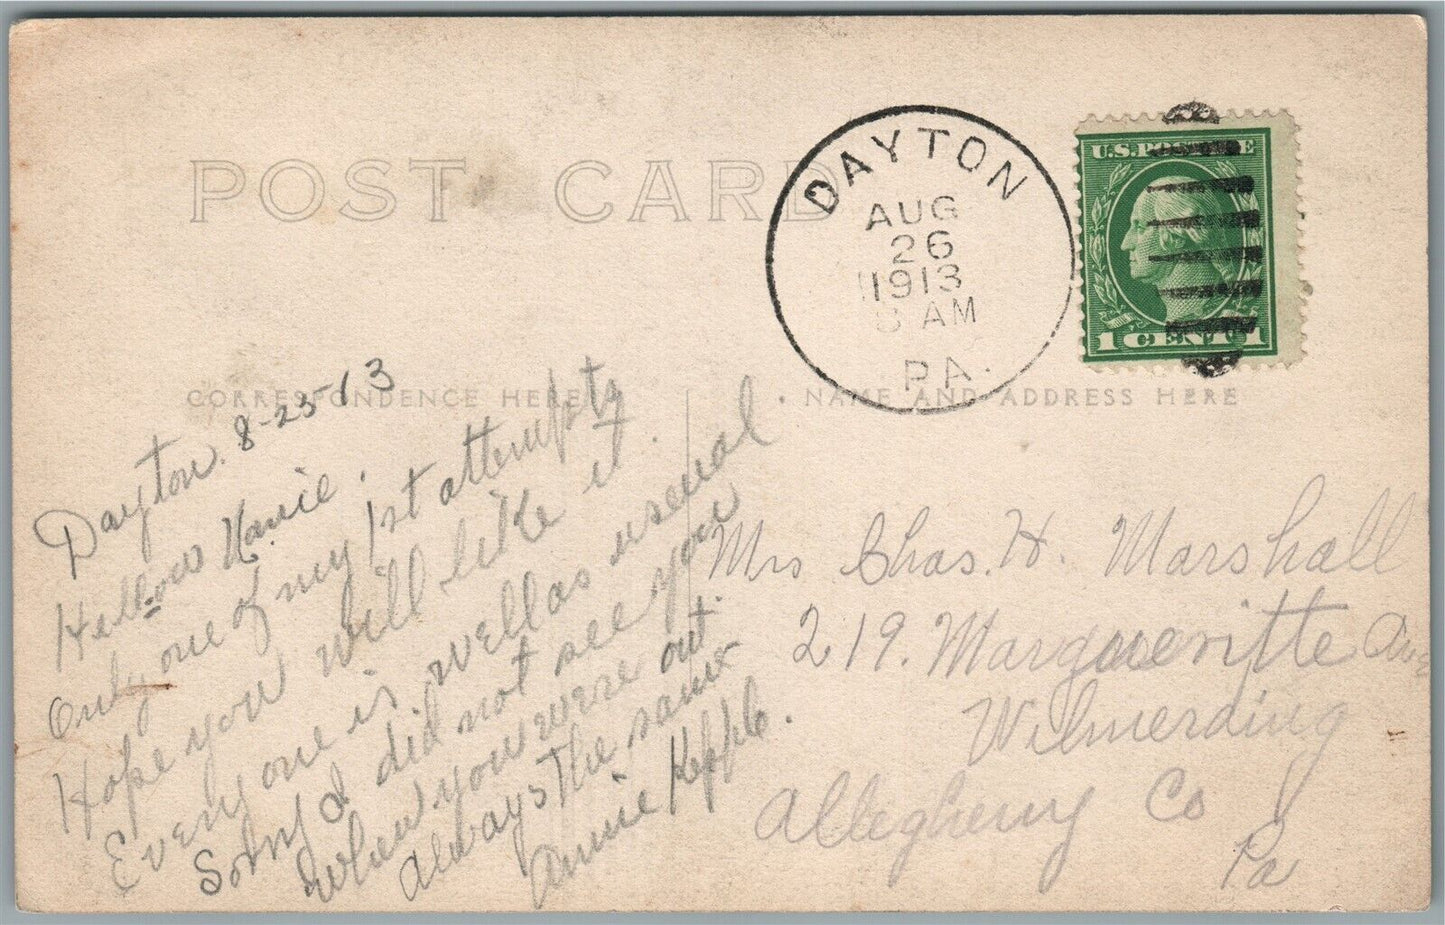 POST CARD
DAYTON
AUG
26
1913
8 AM
PA.
U.S. POSTAGE
1 CENT 1
CORRESPONDENCE HERE
NAME AND ADDRESS HERE
Dayton. 8-23-13
Hellow
Only one of my 1st attempts
Hope you will like it.
Every one is well as usual
Sorry I did not see you
when you were out.
Always the same
Annie Kepple.
Mrs Chas. H. Marshall
219. Margueritte Ave
Wilmerding
Allegheny Co
Pa